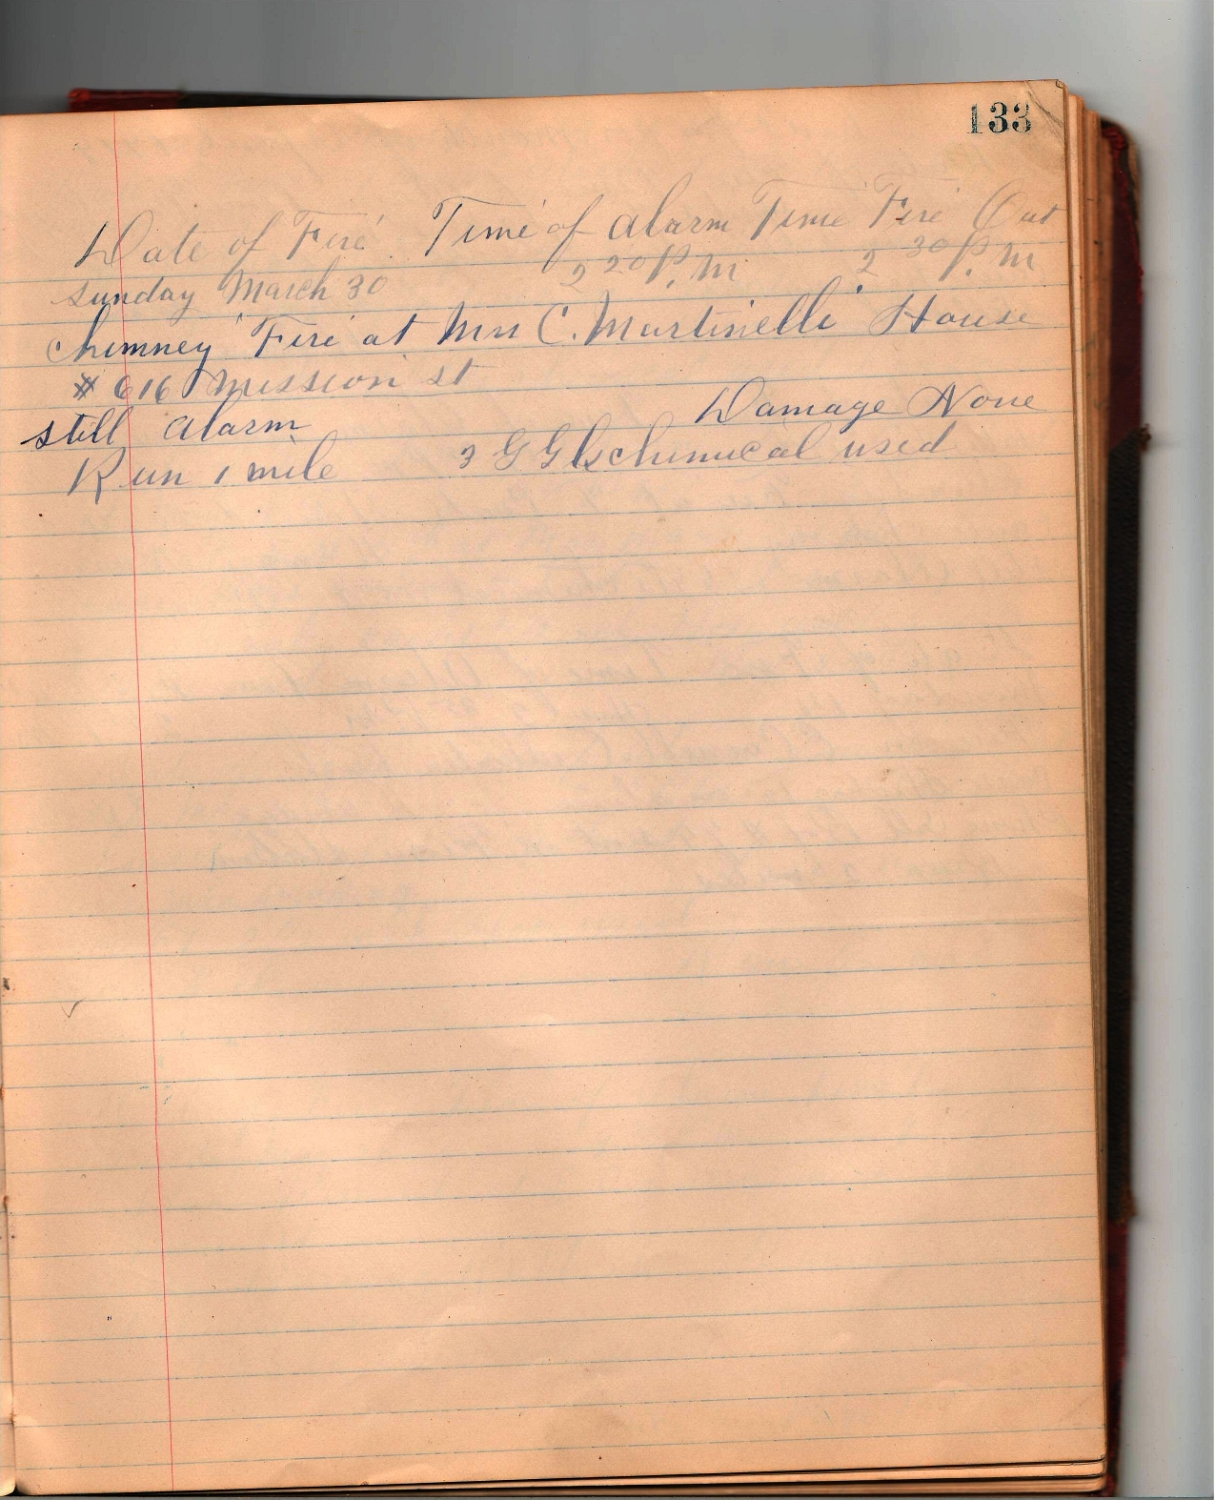 133
Date of Fire Time of alarm Time Fire Out
Sunday March 30 2 20 P.M 2 30 P.M
Chimney Fire at Mrs C. Martinelli House
# 616 Mission st
Damage None
still alarm
Run 1 mile 3 chemical used